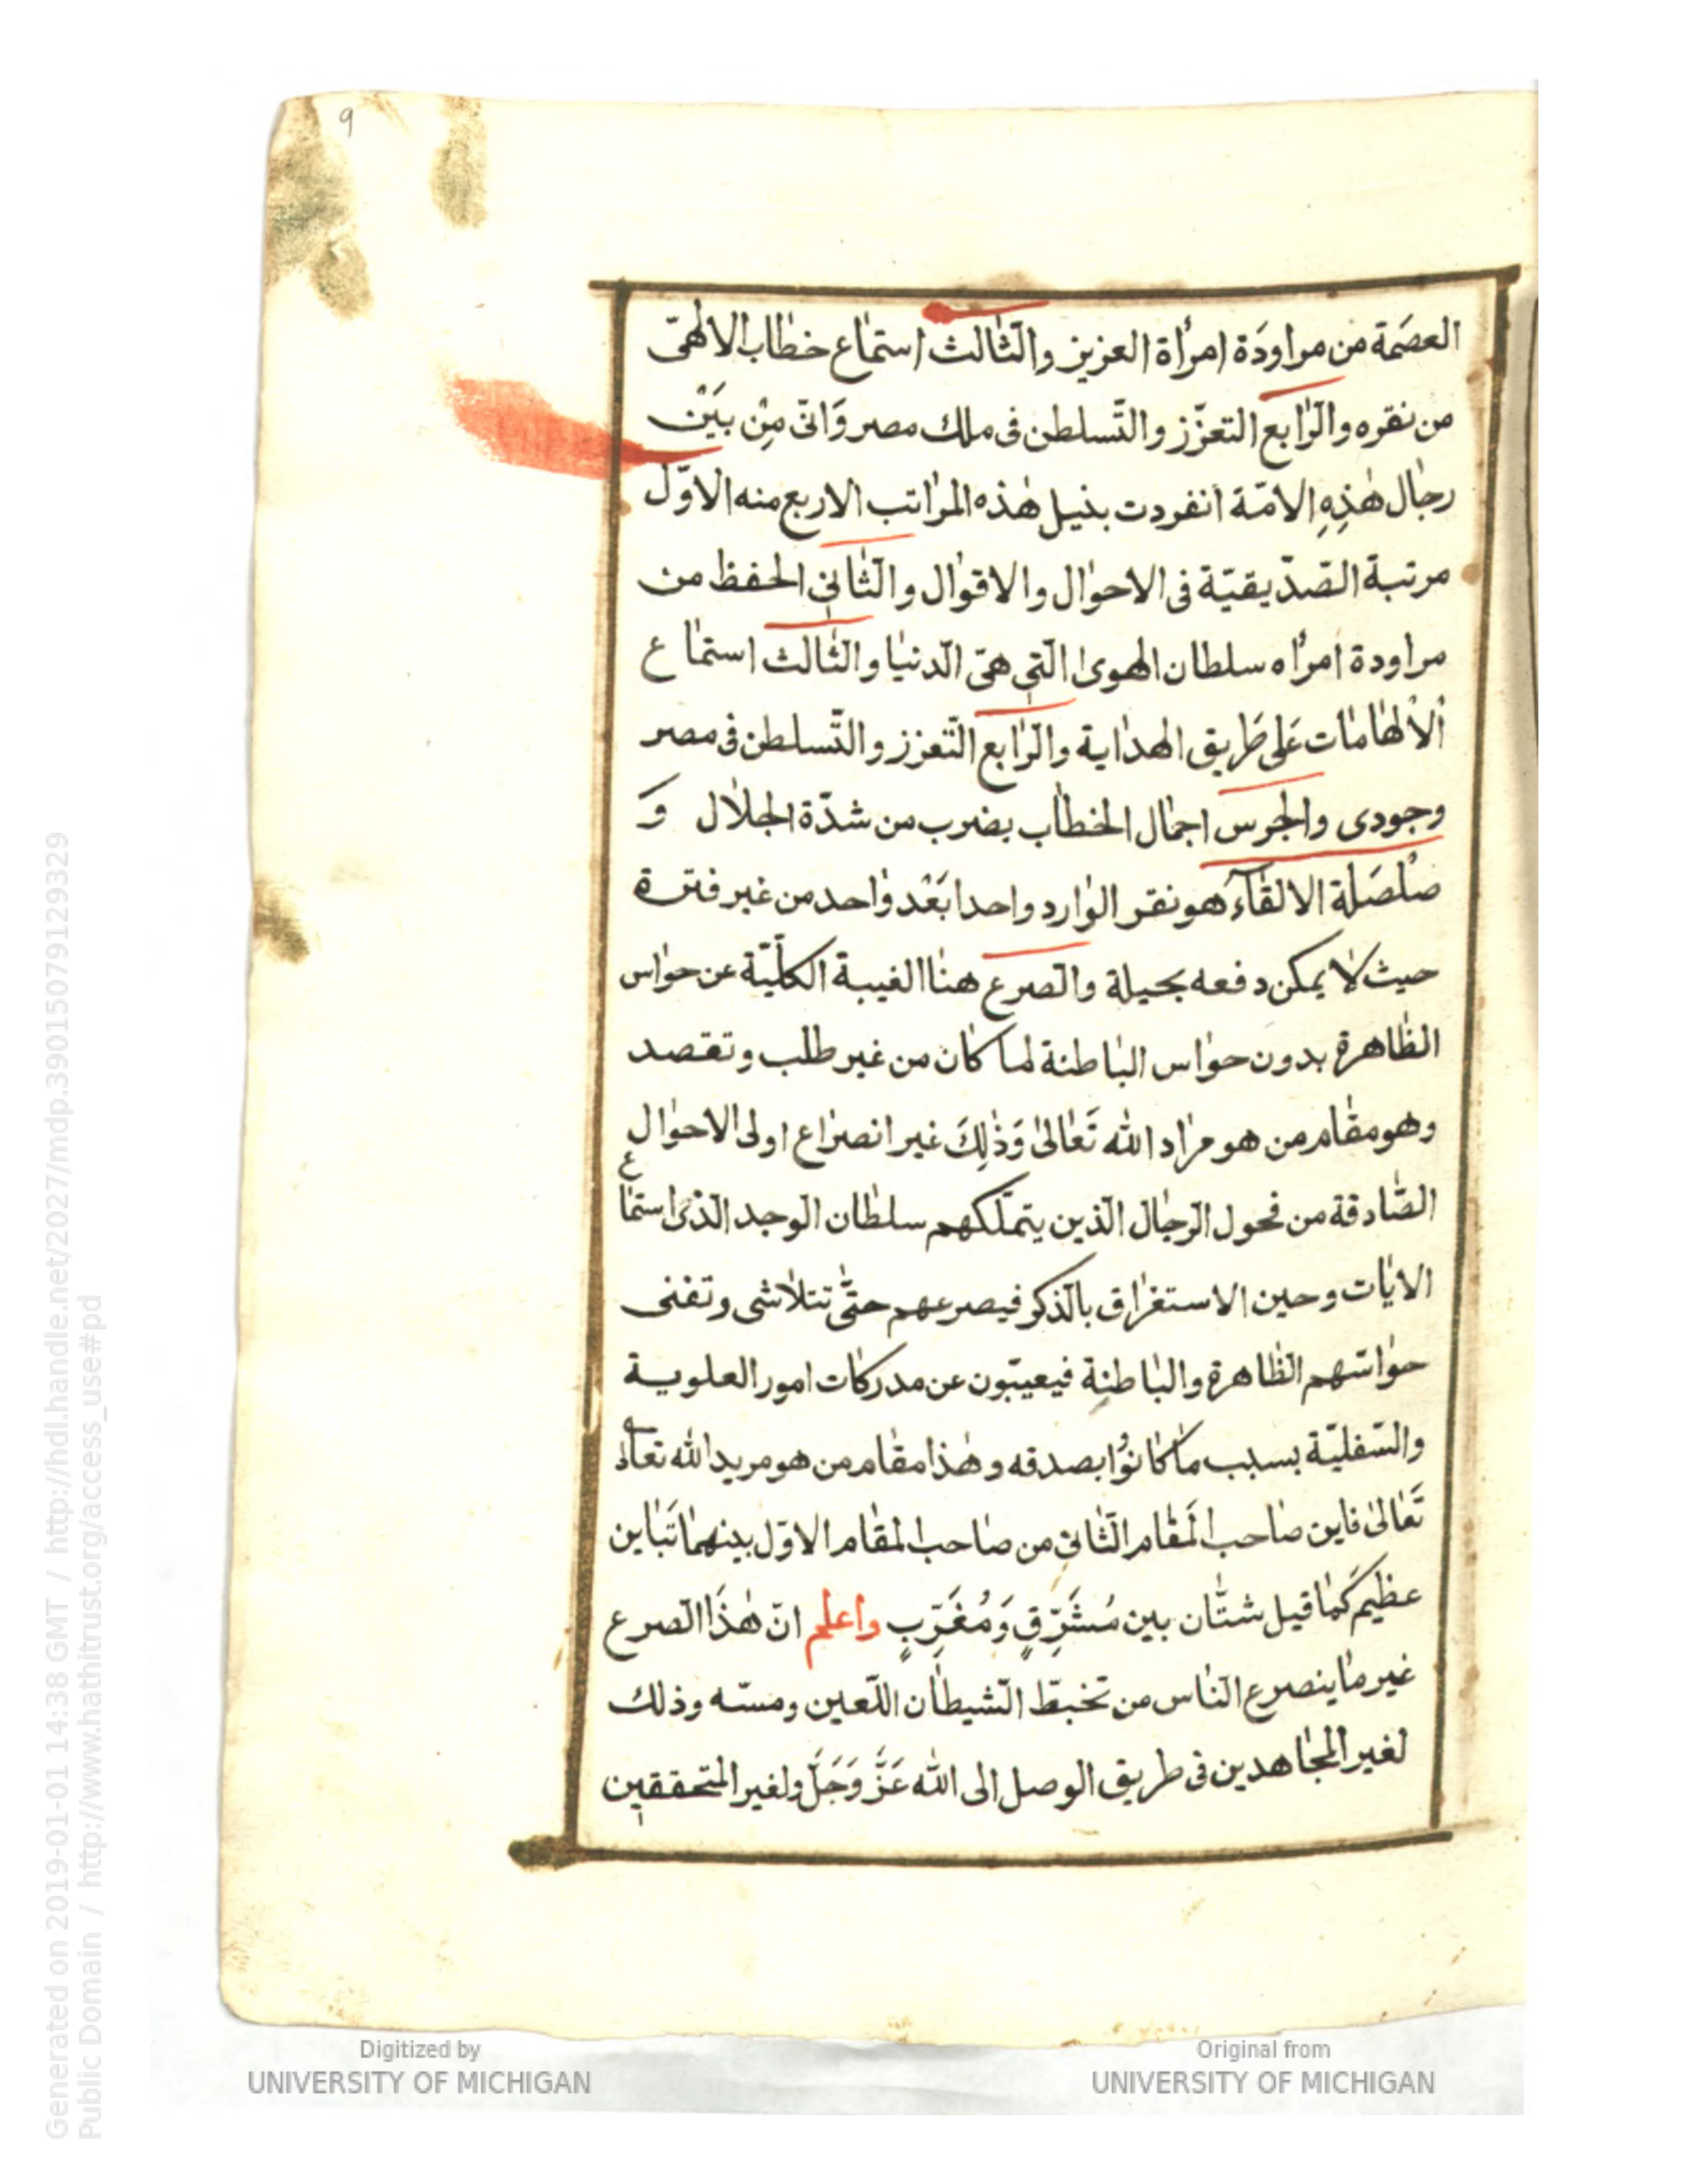 9
العصَمة من مراودَة امرأة العزيز والثّالث استماع خطاب الالهىّ
من نقره والرّابع التعزّز والتّسلطن فى ملك مصر وَانّى مِنْ بَيْن
رجال هٰذِهِ الامّة انفردت بنيل هٰذه المراتب الاربع منه الاوّل
مرتبة الصّدّيقيّة فى الاحوال والاقوال والثّانى الحفظ من
مراودة امرأه سلطان الهوى الّتى هىَ الّدنيا والثّالث استماع
ألالهامات عَلى طَريق الهداية والرّابع التّعزز والتّسلطن فى مصر
وجودى والجرس اجمال الخطاب بضرب من شدّة الجلال وَ
صَلصَلة الالقآء هو نقر الوارد واحدا بَعْد واحد من غير فترة
حيث لا يمكن دفعه بحيلة والصّرع هنا الغيبة الكلّيّة عن حواس
الظّاهرة بدون حواس الباطنة لما كان من غير طلب وتقصد
وهو مقام من هو مراد الله تَعَالىٰ وَذٰلِكَ غير انصراع اولى الاحوال
الصّادقة من فحول الرّجال الّذين يتملّكهم سلطان الوجد الّذى استماع
الايات وحين الاستغراق بالذّكر فيصرعهم حتّى تتلاشى وتفنى
حواسّهم الظّاهرة والباطنِة فيعيبّون عن مدركات امور العلوية
والسّفليّة بسبب ما كانوُا بصدقه وهٰذا مقام من هو مريد الله تعالىٰ
تَعَالىٰ فاين صاحب المَقام الثّانى من صاحب المقام الاوّل بينهما تَباين
عظيم كَما قيل شتّان بين مُشَرِّقٍ وَمُغَرِّبٍ واعلم انّ هٰذَا الصّرع
غير ما ينصرع النّاس من تخبطّ الشّيطان اللّعين ومسّه وذلك
لغير المجاهدين فى طريق الوصل الى الله عَزَّ وَجَلَّ ولغير المتحققين
Generated on 2019-01-01 14:38 GMT / http://hdl.handle.net/2027/mdp.39015079129329
Public Domain / http://www.hathitrust.org/access_use#pd
Digitized by
UNIVERSITY OF MICHIGAN
Original from
UNIVERSITY OF MICHIGAN